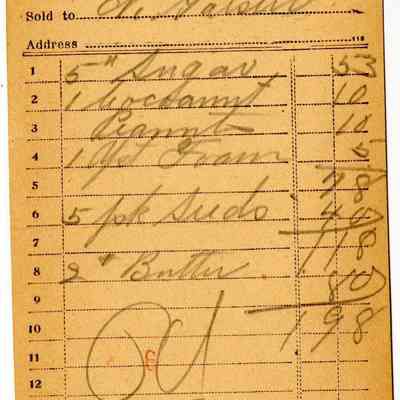 Sold to
Address 118
1 5 # Sugar 53
2 1 Cocoanut 10
3 Peanuts 10
4 1 5
5 78
6 5 pk Seeds 40
7 118
8 2 # Butter 80
9
10 198
11
12